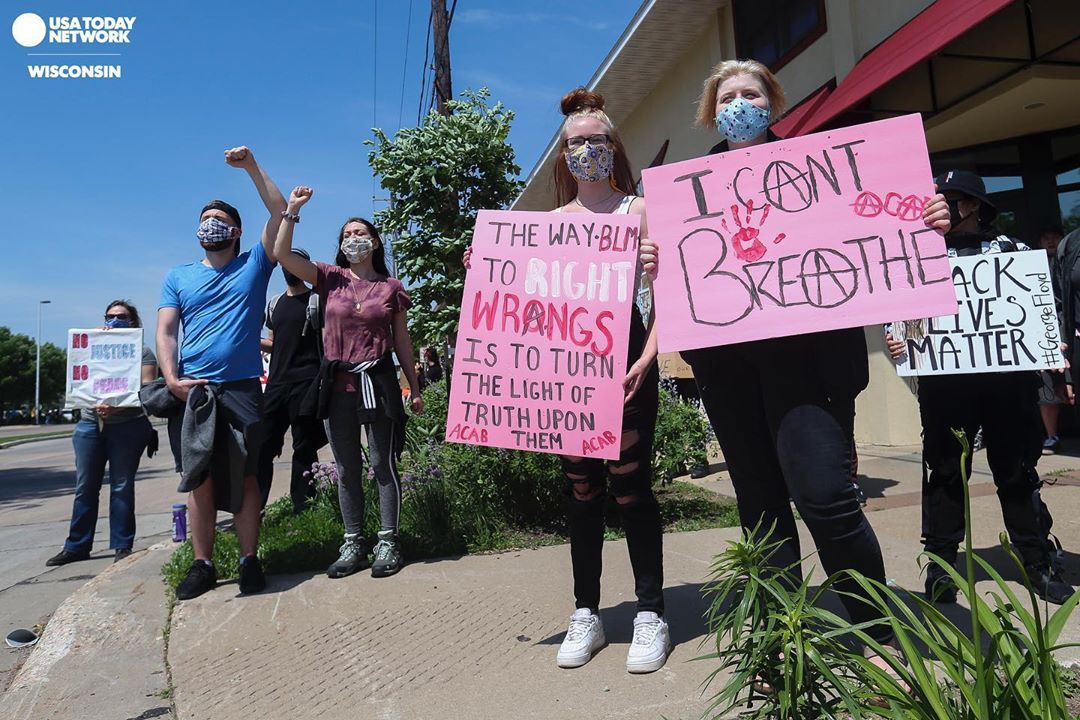 USA TODAY
NETWORK
WISCONSIN
NO
JUSTICE
NO
PEACE
THE WAY-BLM
TO RIGHT
WRANGS
IS TO TURN
THE LIGHT OF
TRUTH UPON
THEM
ACAB
ACAB
I CANT
BREATHE
ACA
ACK
LIVES
MATTER
#GeorgeFloyd